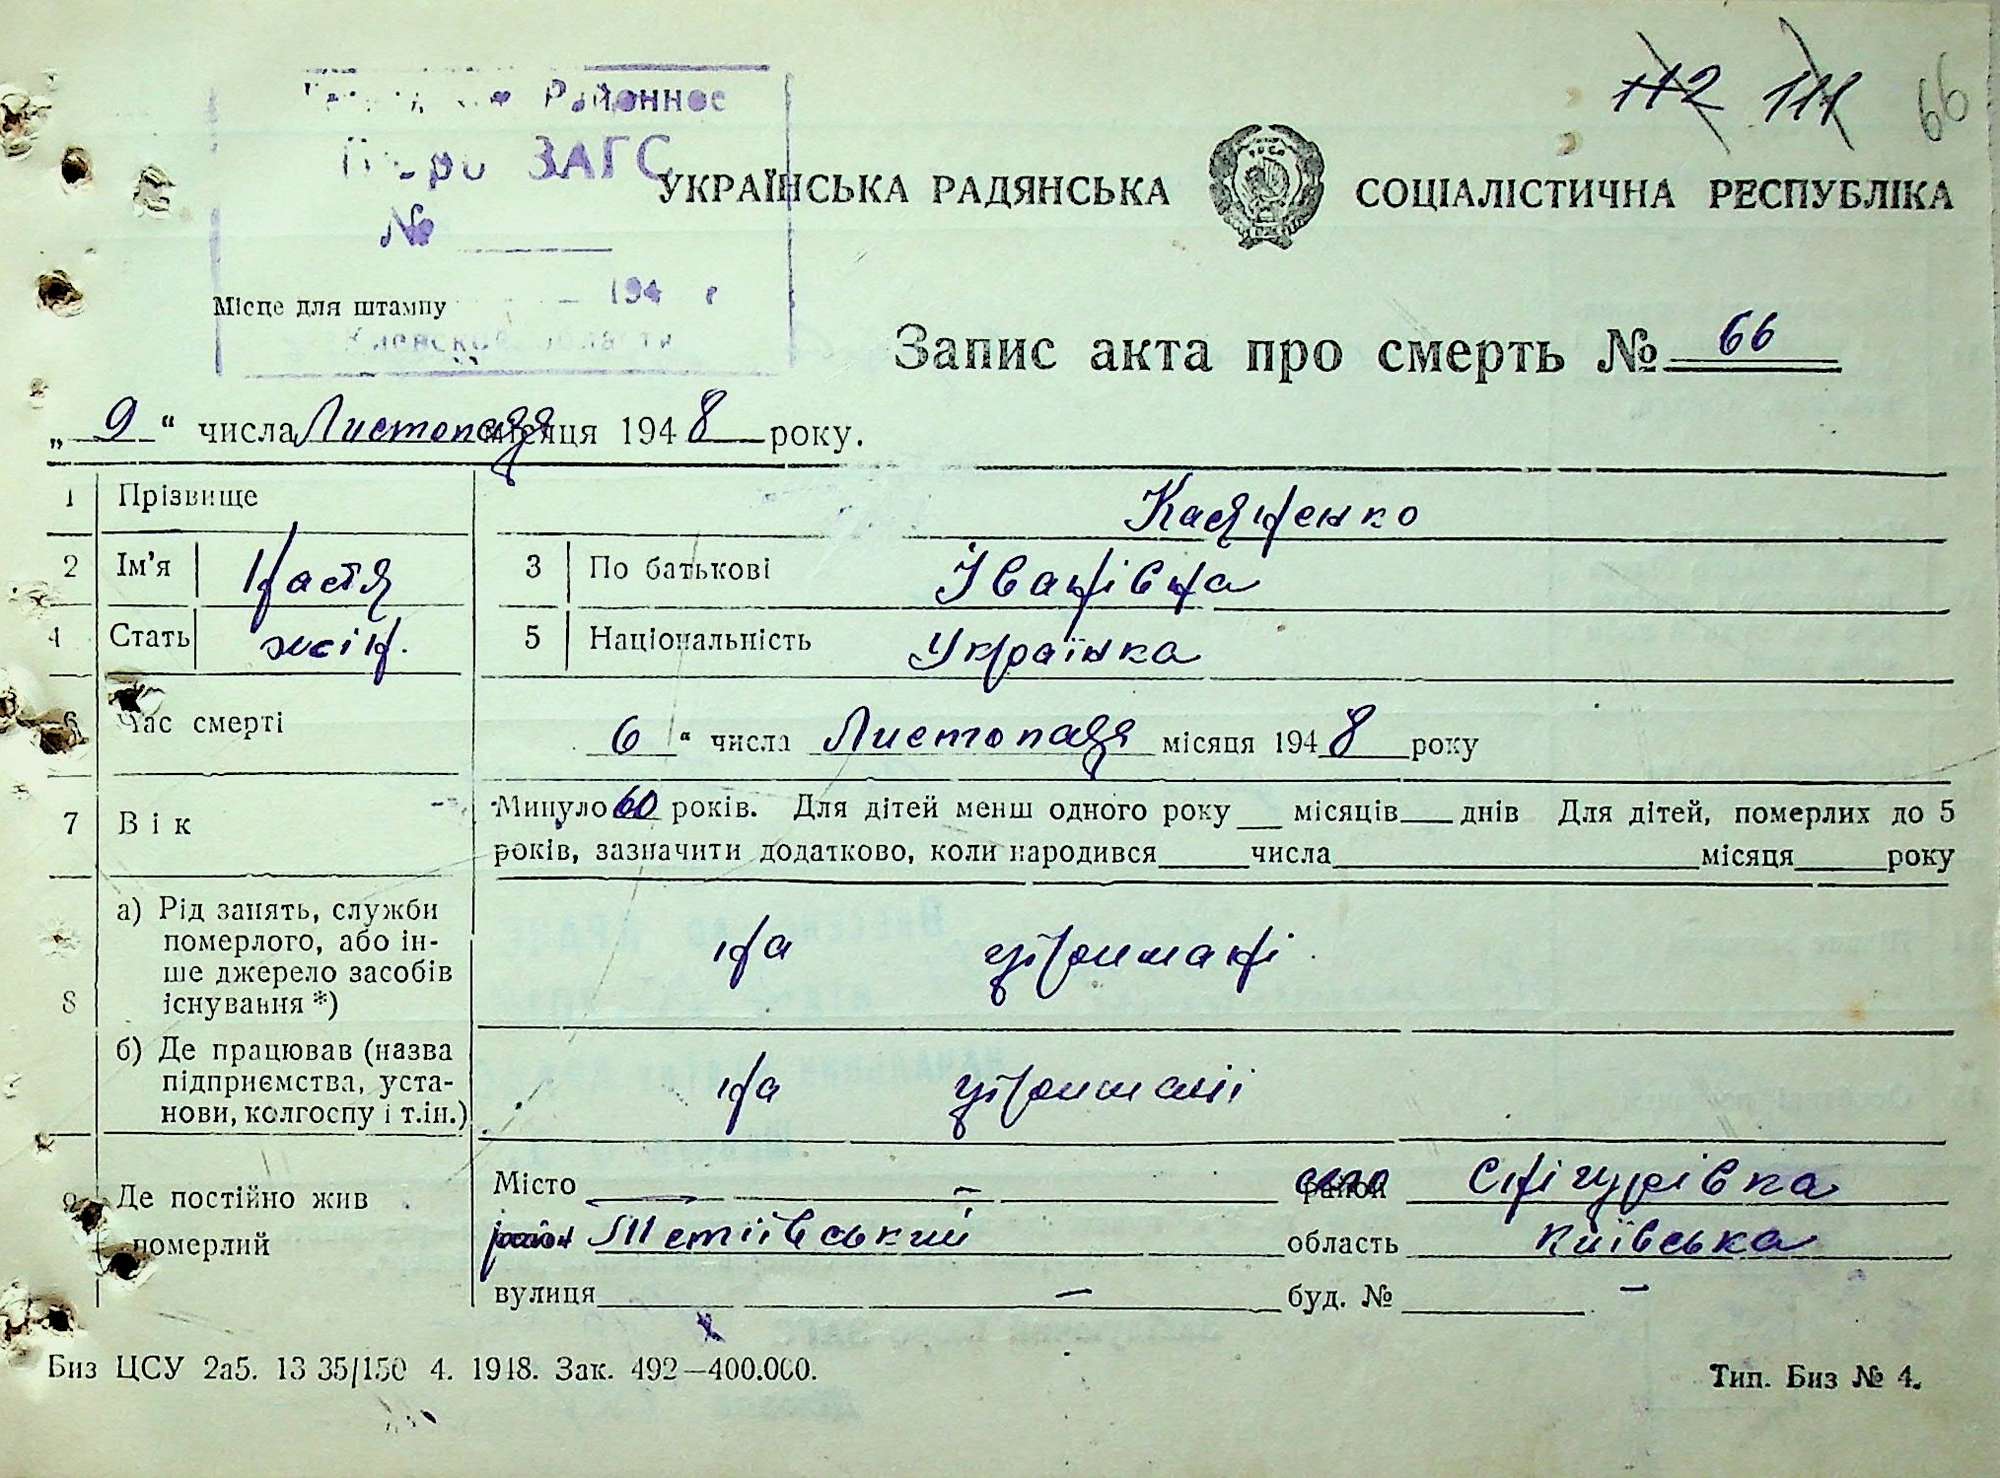 112 111 66
Районное
Бюро ЗАГС
УКРАЇНСЬКА РАДЯНСЬКА СОЦІАЛІСТИЧНА РЕСПУБЛІКА
№
194 г
Місце для штампу
Киевской области
Запис акта про смерть № 66
„ 9 “ числа Листопада місяця 1948 року.
1 Прізвище Касяненко
2 Ім'я Настя 3 По батькові Іванівна
4 Стать жін. 5 Національність Українка
6 Час смерті 6 “ числа Листопада місяця 1948 року
7 Вік Минуло 60 років. Для дітей менш одного року місяців днів Для дітей, померлих до 5
років, зазначити додатково, коли народився числа місяця року
8 а) Рід занять, служби
померлого, або ін-
ше джерело засобів
існування *)
на утриманні
б) Де працював (назва
підприємства, уста-
нови, колгоспу і т.ін.)
на утриманні
9 Де постійно жив
померлий
Місто — – село Снігурівка
район Тетіївський область Київська
вулиця – буд. № –
Биз ЦСУ 2а5. 13 35/150 4. 1948. Зак. 492—400.000. Тип. Биз № 4.